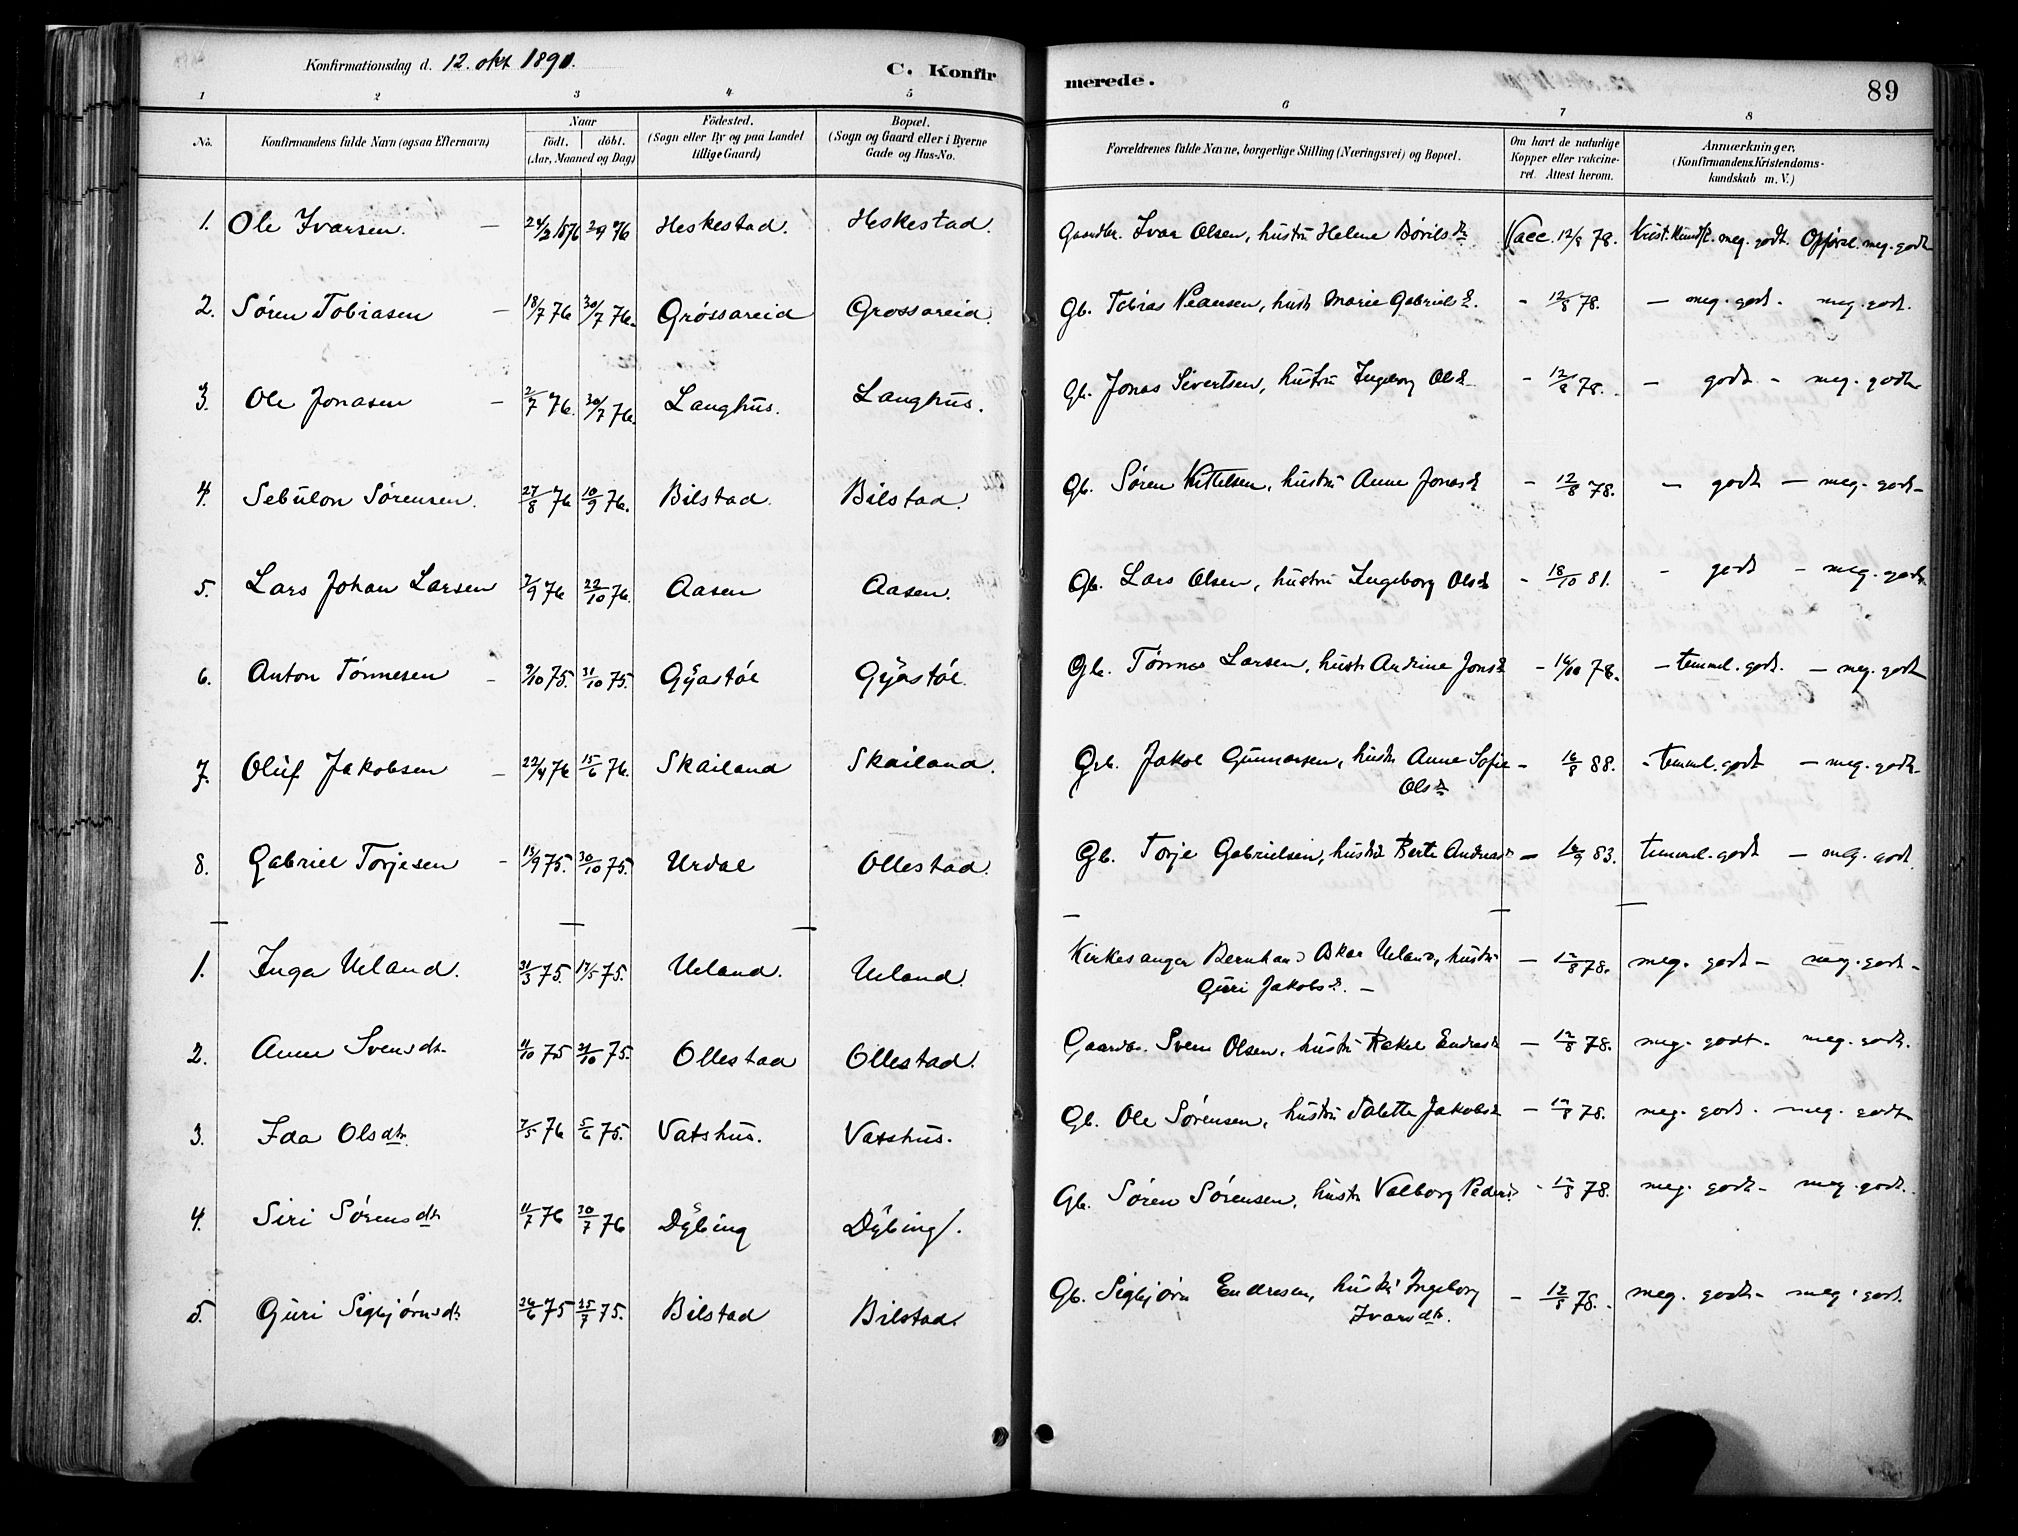 Konfirmationsdag d. 12. okt 1890.
C. Konfirmerede.
89
1 2 3 4 5 6 7 8
No. Konfirmandens fulde Navn (ogsaa Efternavn) Naar født. døbt. (Aar, Maaned og Dag) Fødested. (Sogn eller By og paa Landet tillige Gaard) Bopæl. (Sogn og Gaard eller i Byerne Gade og Hus-No. Forældrenes fulde Navne, borgerlige Stilling (Næringsvei) og Bopæl. Om havt de naturlige Kopper eller vakcineret. Attest herom. Anmærkninger. (Konfirmandens Kristendomskundskab m. V.)
1. Ole Ivarsen. Heskestad. Heskestad. Gaardbr. Ivar Olsen, hustru Helene Vacc. 12/8 78. meg. godt. meg. godt
2. Søren Tobiasen 18/7 76 30/7 76. Gróssareid Grossareid. Gb. Tobias Peersen, hust. Marie Gabriels - 12/8 78. - meg. godt. meg. godt.
3. Ole Jonasen 2/7 76. 30/7 76. Langhus. Langhus. Gb. Jonas Sivertsen, hustru Ingeborg Olsd - 12/8 78. - godt - meg. godt
4. Sebulon Sørensen. 27/8 76 10/9 76. Bilstad. Bilstad. Gb. Søren Kittelsen, hustru Anne Jonasd - 12/8 78. - godt - meg. godt
5. Lars Johan Larsen 7/9 76 22/10 76. Aasen Aasen. Gb. Lars Olsen, hustru Ingeborg Olsd - 18/10 81. - godt - meg. godt
6. Anton Tønnesen 9/10 75. 31/10 75. Gÿastøl Gÿastøl. Gb. Tønnes Larsen, hustr Andrine Jonsd - 16/10 78. - temml. godt. - meg. godt
7. Oluf Jakobsen 22/4 76 15/6 76. Skailand Skailand. Gb. Jakob Gunnarsen, hustr Anne Sofie Olsd - 16/8 88. - temml. godt - meg. godt
8. Gabriel Torjesen 15/9 75. 30/10 75. Urdal Ollestad. Gb. Torje Gabrielsen, hustru Berte Andreasd - 16/9 83. temml. godt - meg. godt
1. Inga Ueland. 31/3 75. 17/5 75. Ueland. Ueland. Kirkesanger Bernhard Ueland, hustru Guri Jakobsd. - - 12/8 78. meg. godt - meg. godt -
2. Anne Svensdtr 11/10 75 31/10 75. Ollestad Ollestad. Gaardbr. Sven Olsen, hustru Rakel Endresd - 12/8 78. meg. godt. meg. godt.
3. Ida Olsdtr. 7/5 76 5/6 75. Vatshus. Vatshus. Gb. Ole Sørensen, hustru Talette Jakobsd - 12/8 78. meg. godt. meg. godt
4. Siri Sørensdtr 11/7 76 30/7 76 Dÿbing Dÿbing. Gb. Søren Sørensen, hustr Valborg Pedersd - 12/8 78. meg. godt - meg. godt.
5. Guri Sigbjørnsdtr 26/6 75 25/7 75. Bilstad Bilstad. Gb. Sigbjørn Endresen, hustru Ingeborg Ivarsdtr. - 12/8 78. meg. godt - meg. godt.